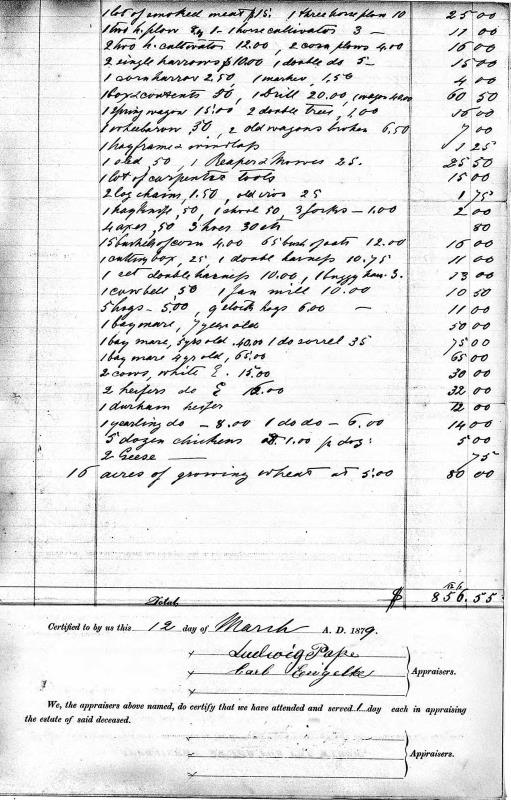 1 lot of smoked meat $15. 1 three horse plow 10 25 00
1 two h. plow 1 horse cultivators 3 — 11 00
2 two h. cultivators 12.00, 2 corn plows 4.00 16 00
2 single harrows $10.00 1 double do 5 — 15 00
1 corn harrow 2.50, 1 marker, 1.50 4 00
1 box & contents 50, 1 Drill 20.00, 1 wagon 40.00 60 50
1 spring wagon 15.00 2 double trees, 1.00 16 00
1 wheelbarow 50, 2 old wagons broken 6.50 7 00
1 hayframe & 1 25
1 sled, 50, 1 Reaper & Mower 25. 25 50
1 lot of carpenter tools 15 00
2 log chains, 1.50, old iron 25 1 75
1 hay knife, 50, 1 shovel 50, 3 forks — 1.00 2 00
4 axes, 50 3 hoes 30 cts 80
15 bushels of corn 4.00 65 bush of oats 12.00 16 00
1 cutting box, 25, 1 double harness 10.75 11 00
1 set double harness 10.00, 1 buggy har. 3. 13 00
1 cowbell, 50 1 fan mill 10.00 10 50
5 hogs — 5.00, 9 stock hogs 6.00 — 11 00
1 bay mare, 7 years old 50 00
1 bay mare, 5 yrs old 40.00 1 do sorrel 35 75 00
1 bay mare 4 yr old, 65.00 65 00
2 cows, white 15.00 30 00
2 heifers do 16.00 32 00
1 durham heifer 12 00
1 yearling do — 8.00 1 do do — 6.00 14 00
5 dozen chickens at 1.00 p doz: 5 00
2 Geese — 75
16 acres of growing wheat at 5.00 80 00
Total, $ 856.55
Certified to by us this 12 day of March A. D. 1879.
x Ludwig Pape
x Carl Engelke
x
Appraisers.
We, the appraisers above named, do certify that we have attended and served 1 day each in appraising
the estate of said deceased.
x
x
x
Appraisers.